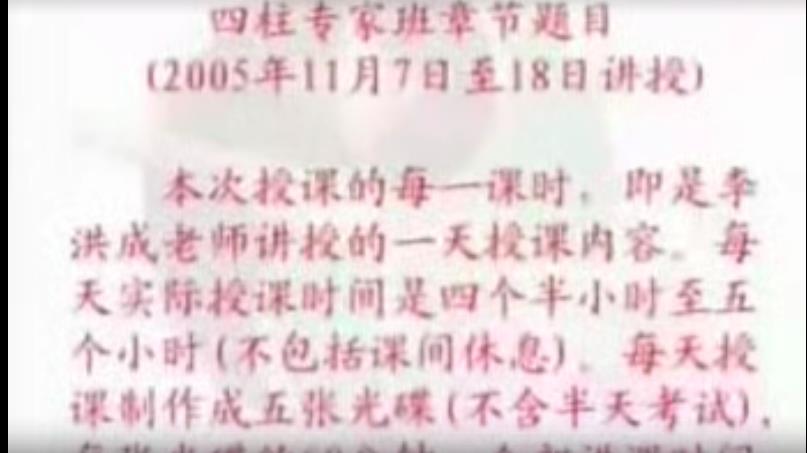 四柱专家班章节题目
(2005年11月7日至18日讲授)
本次授课的每一课时,即是李
洪成老师讲授的一天授课内容。每
天实际授课时间是四个半小时至五
个小时(不包括课间休息)。每天授
课制作成五张光碟(不含半天考试),